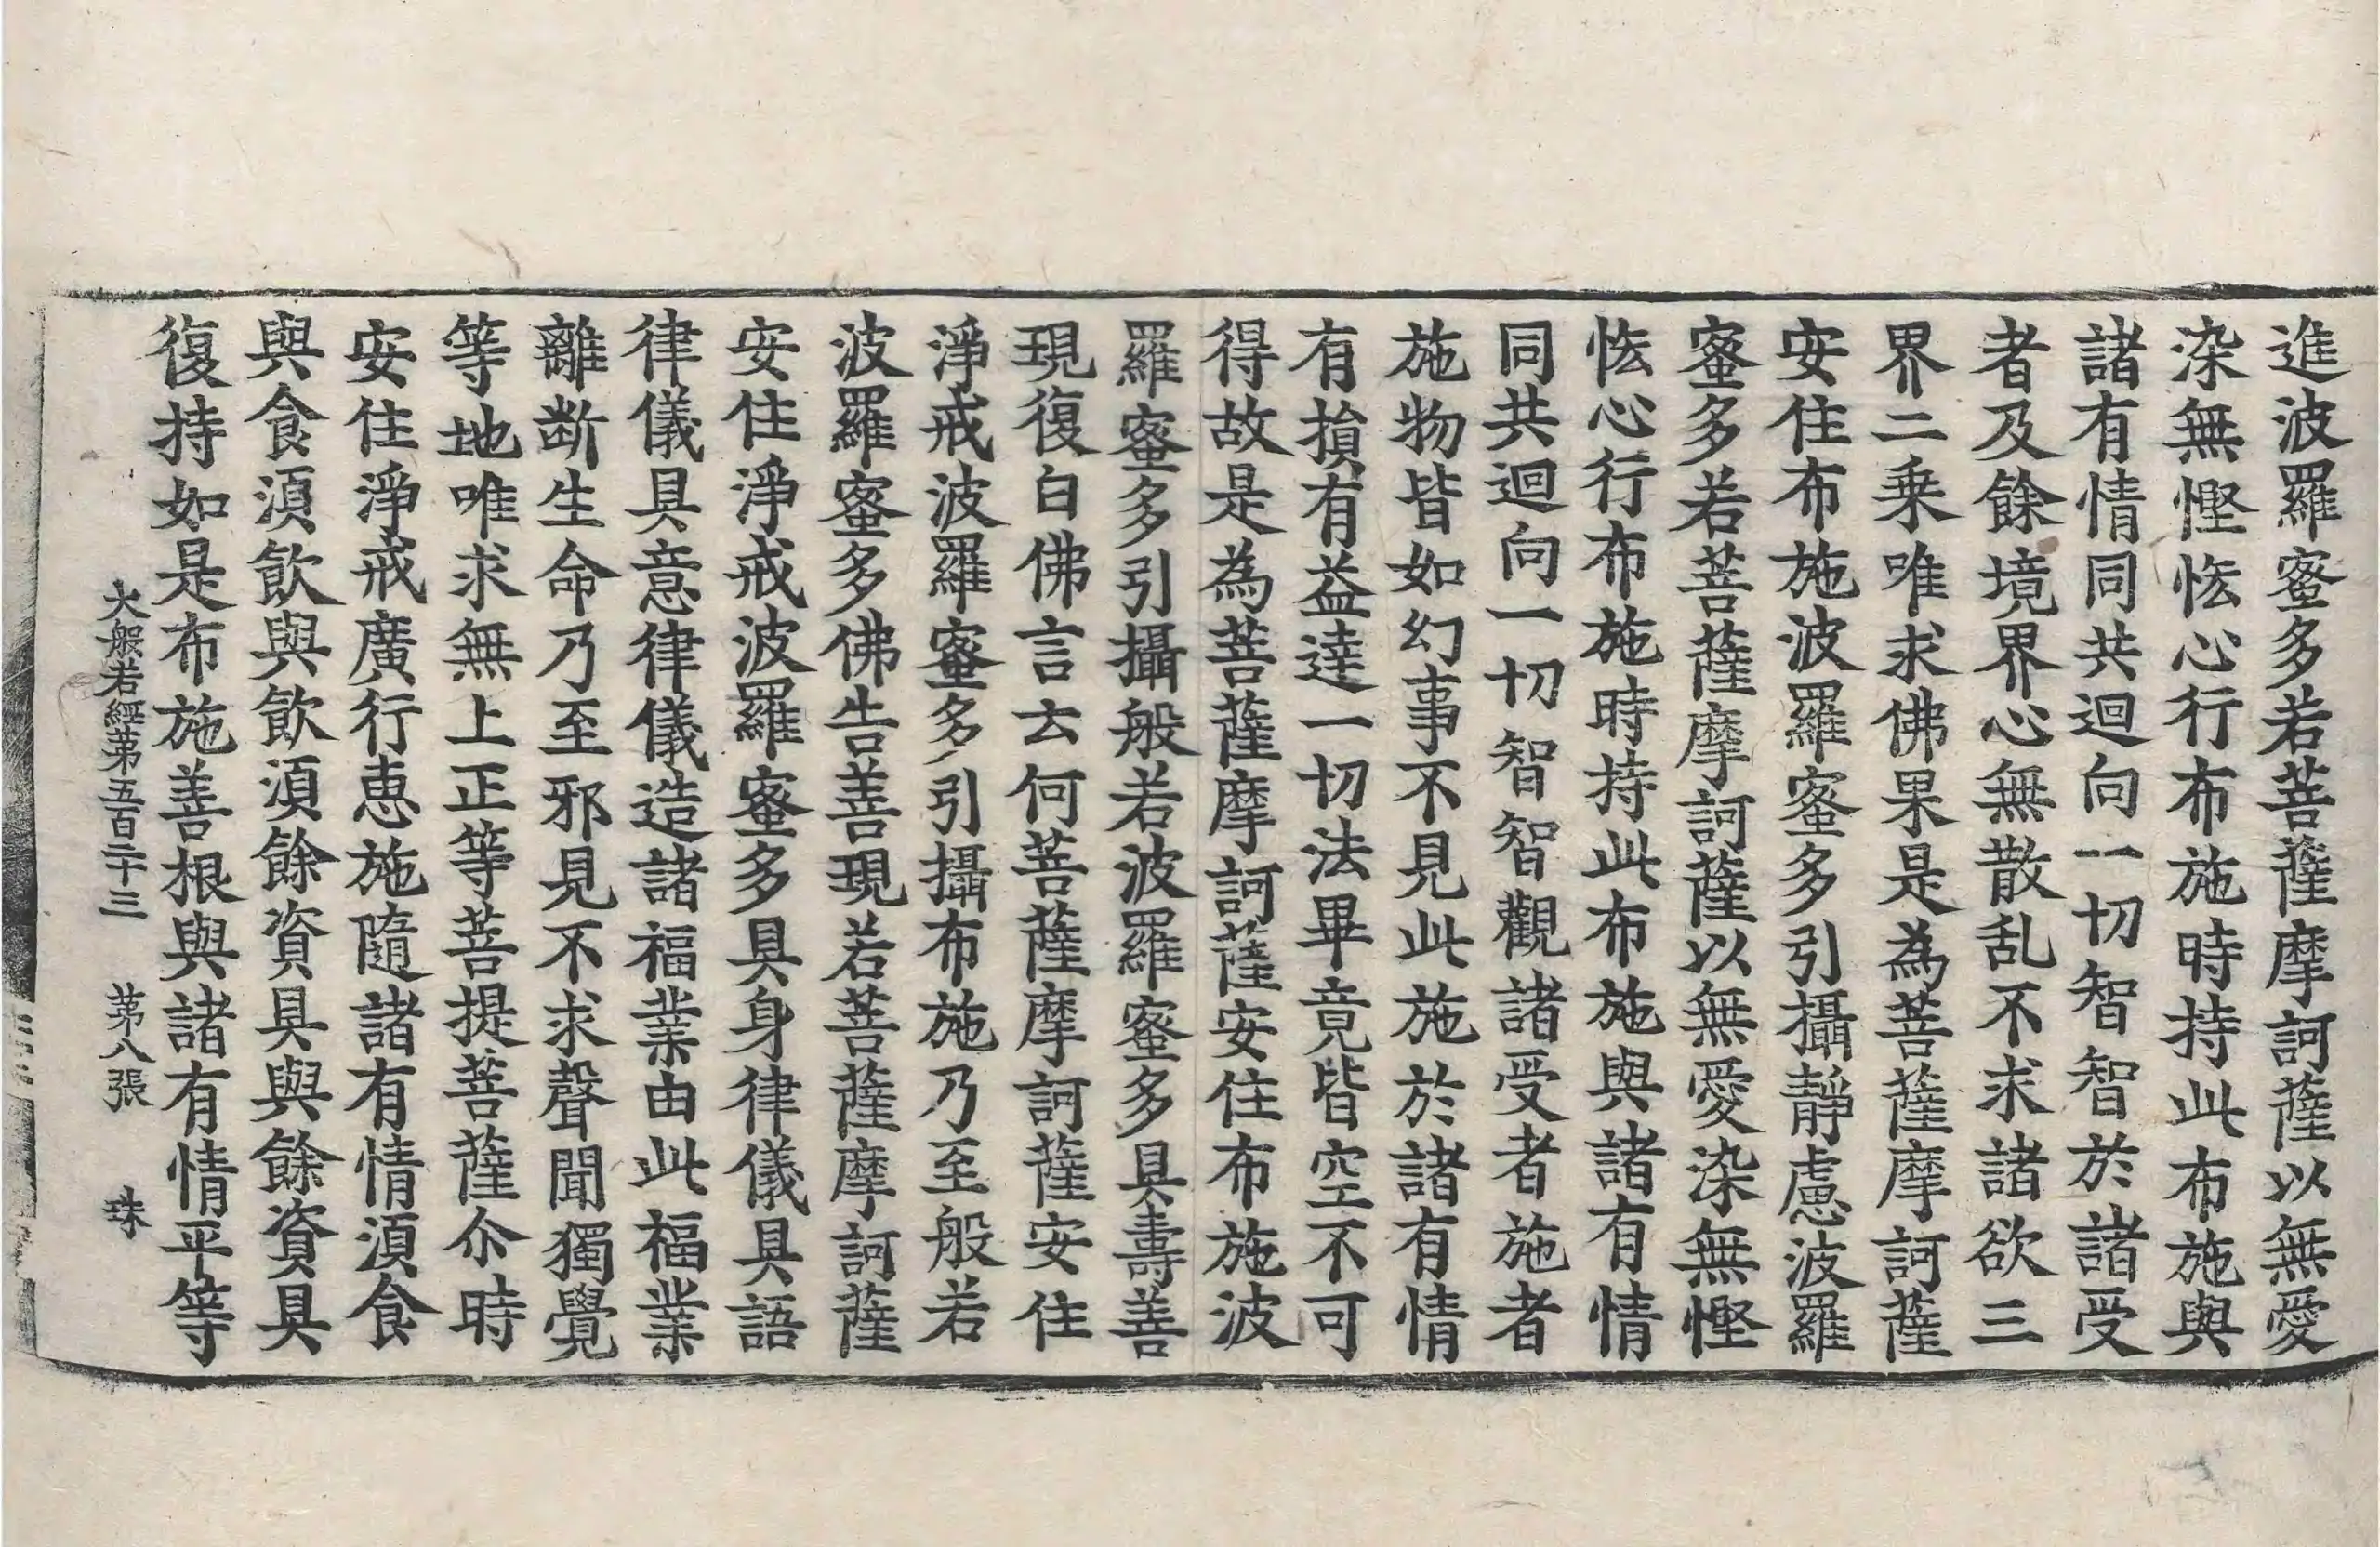 進波羅蜜多若菩薩摩訶薩以無愛
染無慳悋心行布施時持此布施與
諸有情同共迴向一切智智於諸受
者及餘境界心無散乱不求諸欲三
界二乗唯求佛果是為菩薩摩訶薩
安住布施波羅蜜多引攝靜慮波羅
蜜多若菩薩摩訶薩以無愛染無慳
悋心行布施時持此布施與諸有情
同共迴向一切智智觀諸受者施者
施物皆如幻事不見此施於諸有情
有損有益達一切法畢竟皆空不可
得故是為菩薩摩訶薩安住布施波
羅蜜多引攝般若波羅蜜多具壽善
現復白佛言云何菩薩摩訶薩安住
淨戒波羅蜜多引攝布施乃至般若
波羅蜜多佛告善現若菩薩摩訶薩
安住淨戒波羅蜜多具身律儀具語
律儀具意律儀造諸福業由此福業
離斷生命乃至邪見不求聲聞獨覺
等地唯求無上正等菩提菩薩尒時
安住淨戒廣行恵施隨諸有情湏食
與食湏飲與飲湏餘資具與餘資具
復持如是布施善根與諸有情平等
大般若經苐五百二十三 苐八張 珠